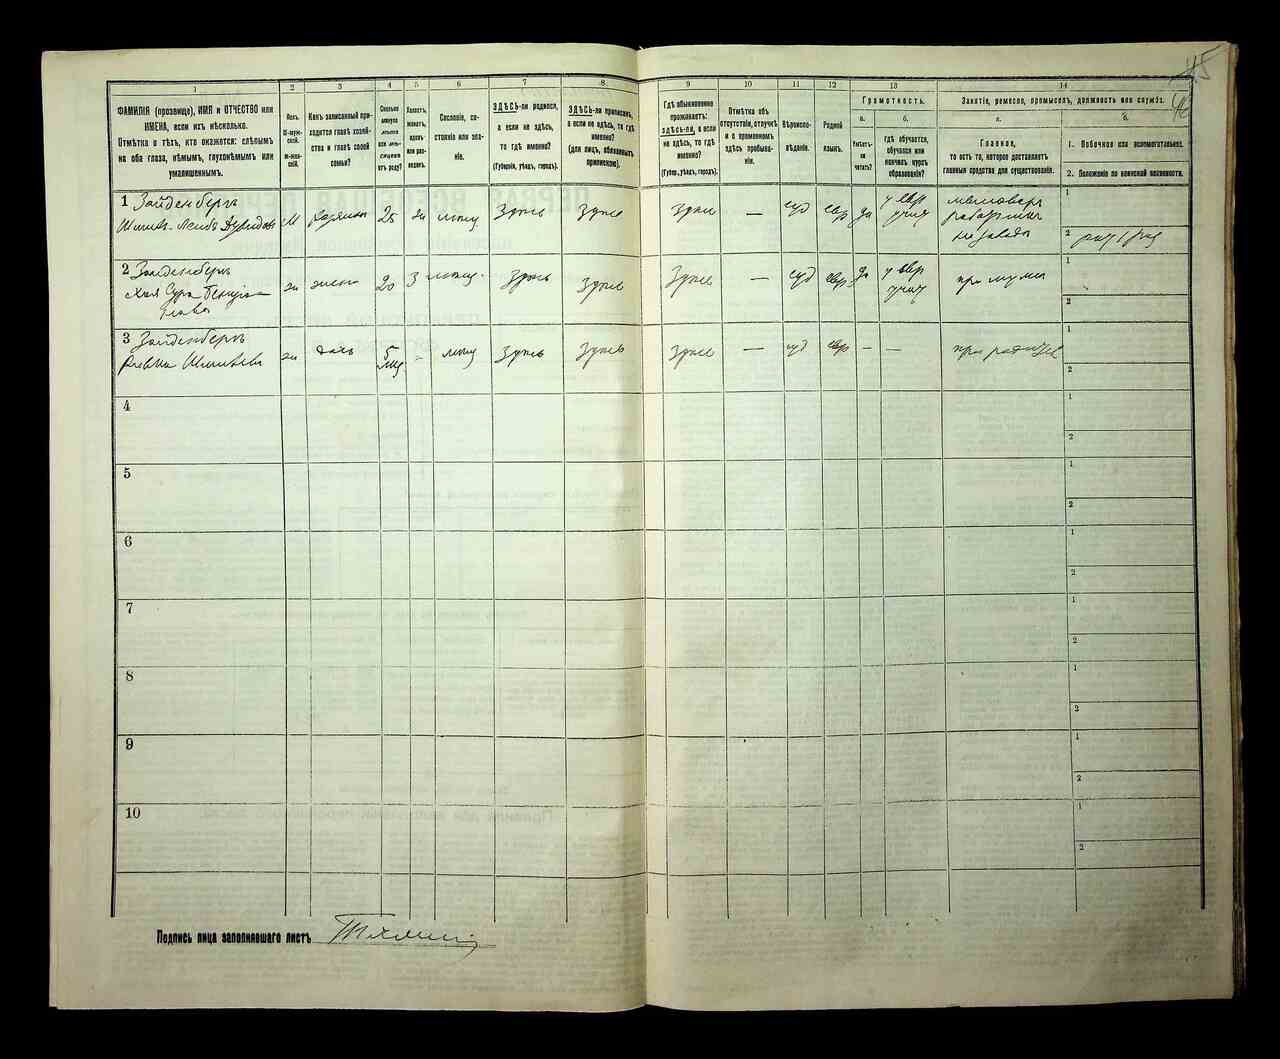 45
1 2 3 4 5 6 7 8 9 10 11 12 13 14
ФАМИЛІЯ (прозвище), ИМЯ и ОТЧЕСТВО или
ИМЕНА, если ихъ нѣсколько.
Отмѣтка о тѣхъ, кто окажется: слѣпымъ
на оба глаза, нѣмымъ, глухонѣмымъ или
умалишеннымъ.
Полъ.
М-муж-
ской.
Ж-жен-
скій.
Какъ записанный при-
ходится главѣ хозяй-
ства и главѣ своей
семьи?
Сколько
минуло
лѣтъ
или мѣ-
сяцевъ
отъ роду?
Холостъ,
женатъ,
вдовъ
или раз-
веденъ.
Сословіе, со-
стояніе или зва-
ніе.
ЗДѢСЬ-ли родился,
а если не здѣсь,
то гдѣ именно?
(Губернія, уѣздъ, городъ).
ЗДѢСЬ-ли приписанъ,
а если не здѣсь, то гдѣ
именно?
(для лицъ, обязанныхъ
припискою).
Гдѣ обыкновенно
проживаетъ:
здѣсь-ли, а если
не здѣсь, то гдѣ
именно?
(Губер., уѣздъ, городъ).
Отмѣтка объ
отсутствіи, отлучкѣ
и о временномъ
здѣсь пребыва-
ніи.
Вѣроиспо-
вѣданіе.
Родной
языкъ.
Грамотность.
а.
Умѣетъ-
ли
читать?
б.
Гдѣ обучается,
обучался или
кончилъ курсъ
образованія?
Занятіе, ремесло, промыселъ, должность или служба.
а.
Главное,
то есть то, которое доставляетъ
главныя средства для существованія.
б.
1. Побочное или вспомогательное.
2. Положеніе по воинской повинности.
1 Зайденберъ М хозяинъ 25 ж мѣщ здѣсь здѣсь здѣсь — іуд евр да у евр 1
учит
2
2 Зайденберъ ж жена 20 З мѣщ. здѣсь здѣсь здѣсь — іуд евр да у евр при мужѣ 1
Хая Сура учит
2
3 Зайденберъ ж дочь 5 - мѣщ здѣсь здѣсь здѣсь — іуд евр — — при родителѣ 1
Ривка мѣс
2
4 1
2
5 1
2
6 1
2
7 1
2
8 1
2
9 1
2
10 1
2
Подпись лица заполнявшаго листъ